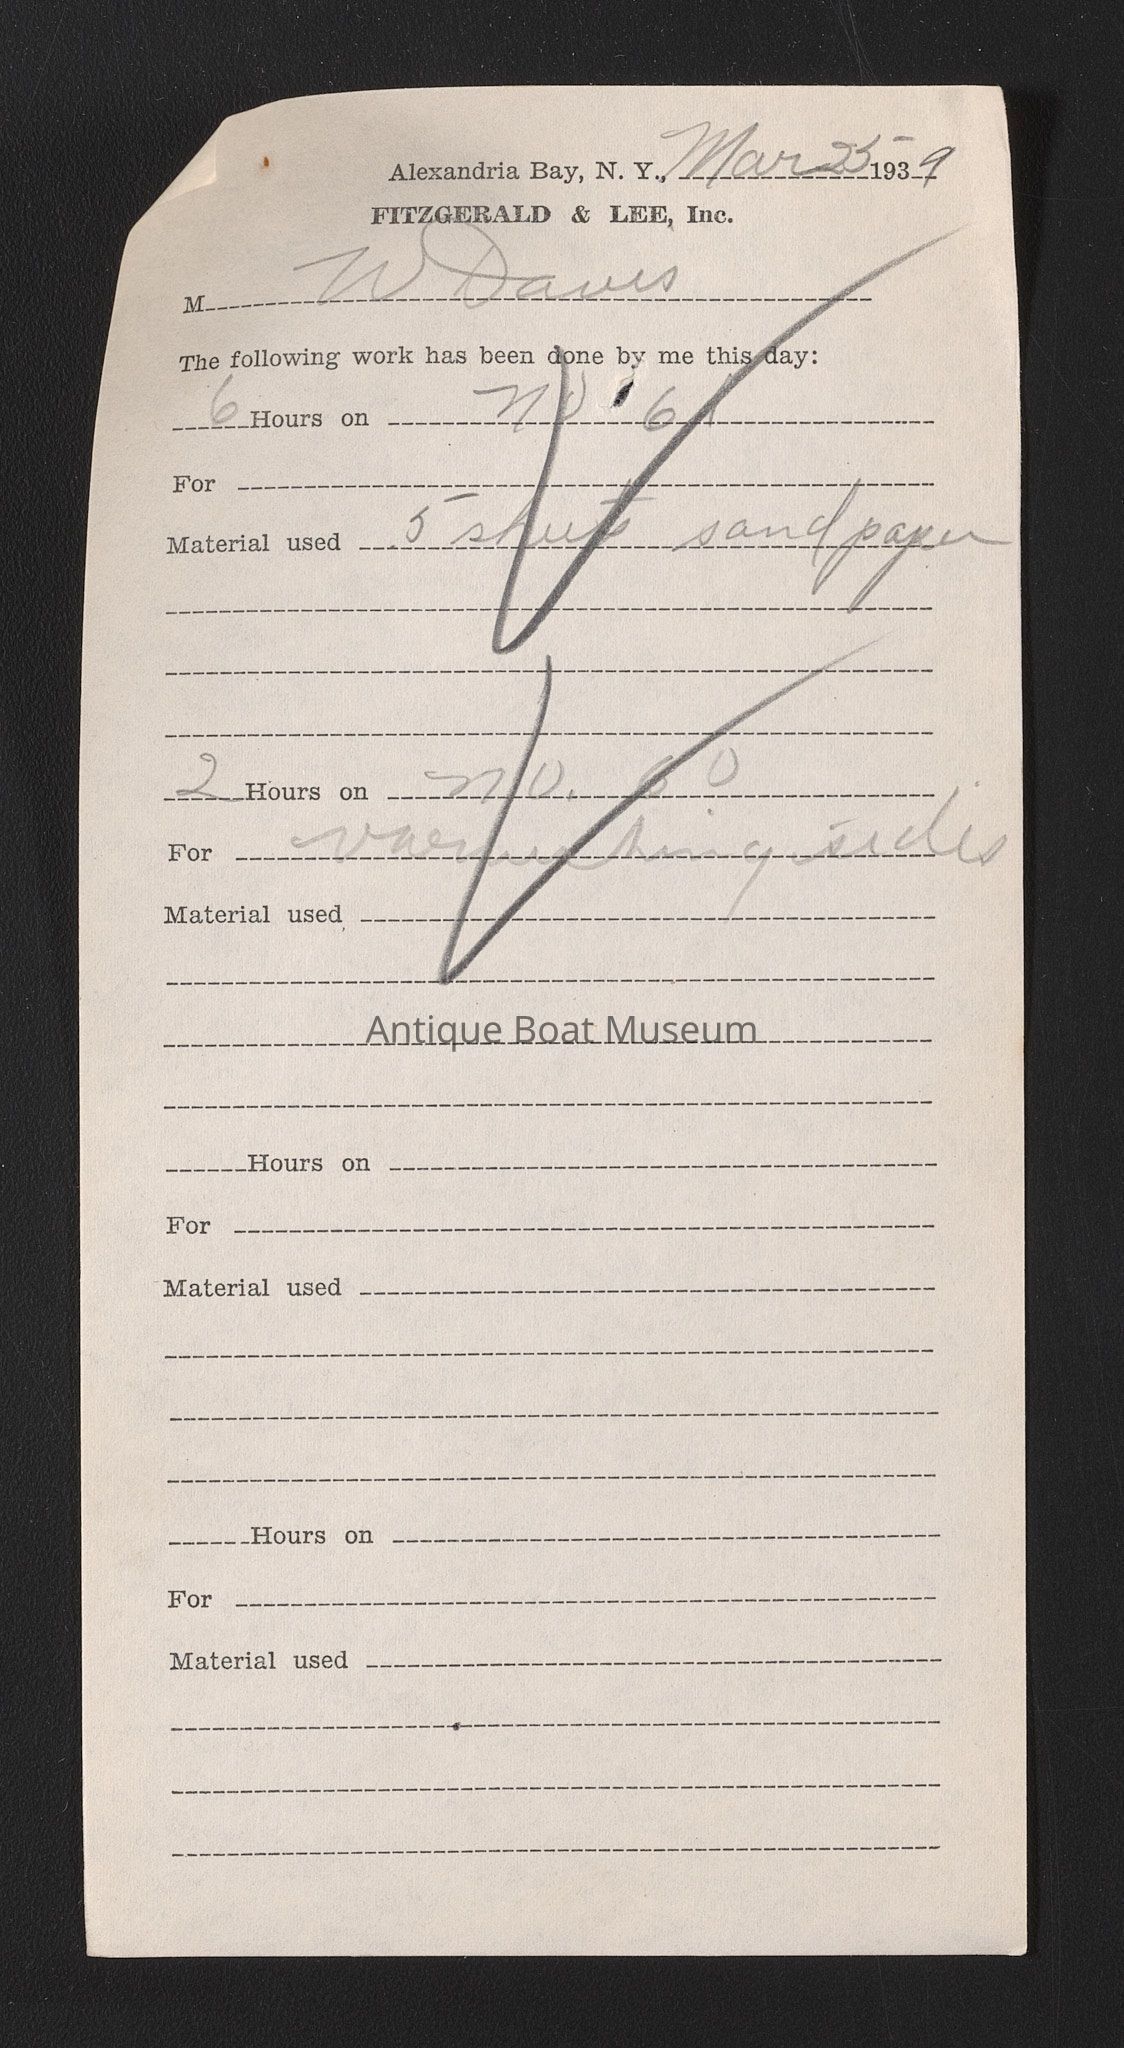 Alexandria Bay, N. Y., Mar 25 1939
FITZGERALD & LEE, Inc.
M W Davis
The following work has been done by me this day:
6 Hours on No 61
For
Material used 5 sheets sandpaper
2 Hours on No. 60
For varnishing sides
Material used
Antique Boat Museum
Hours on
For
Material used
Hours on
For
Material used